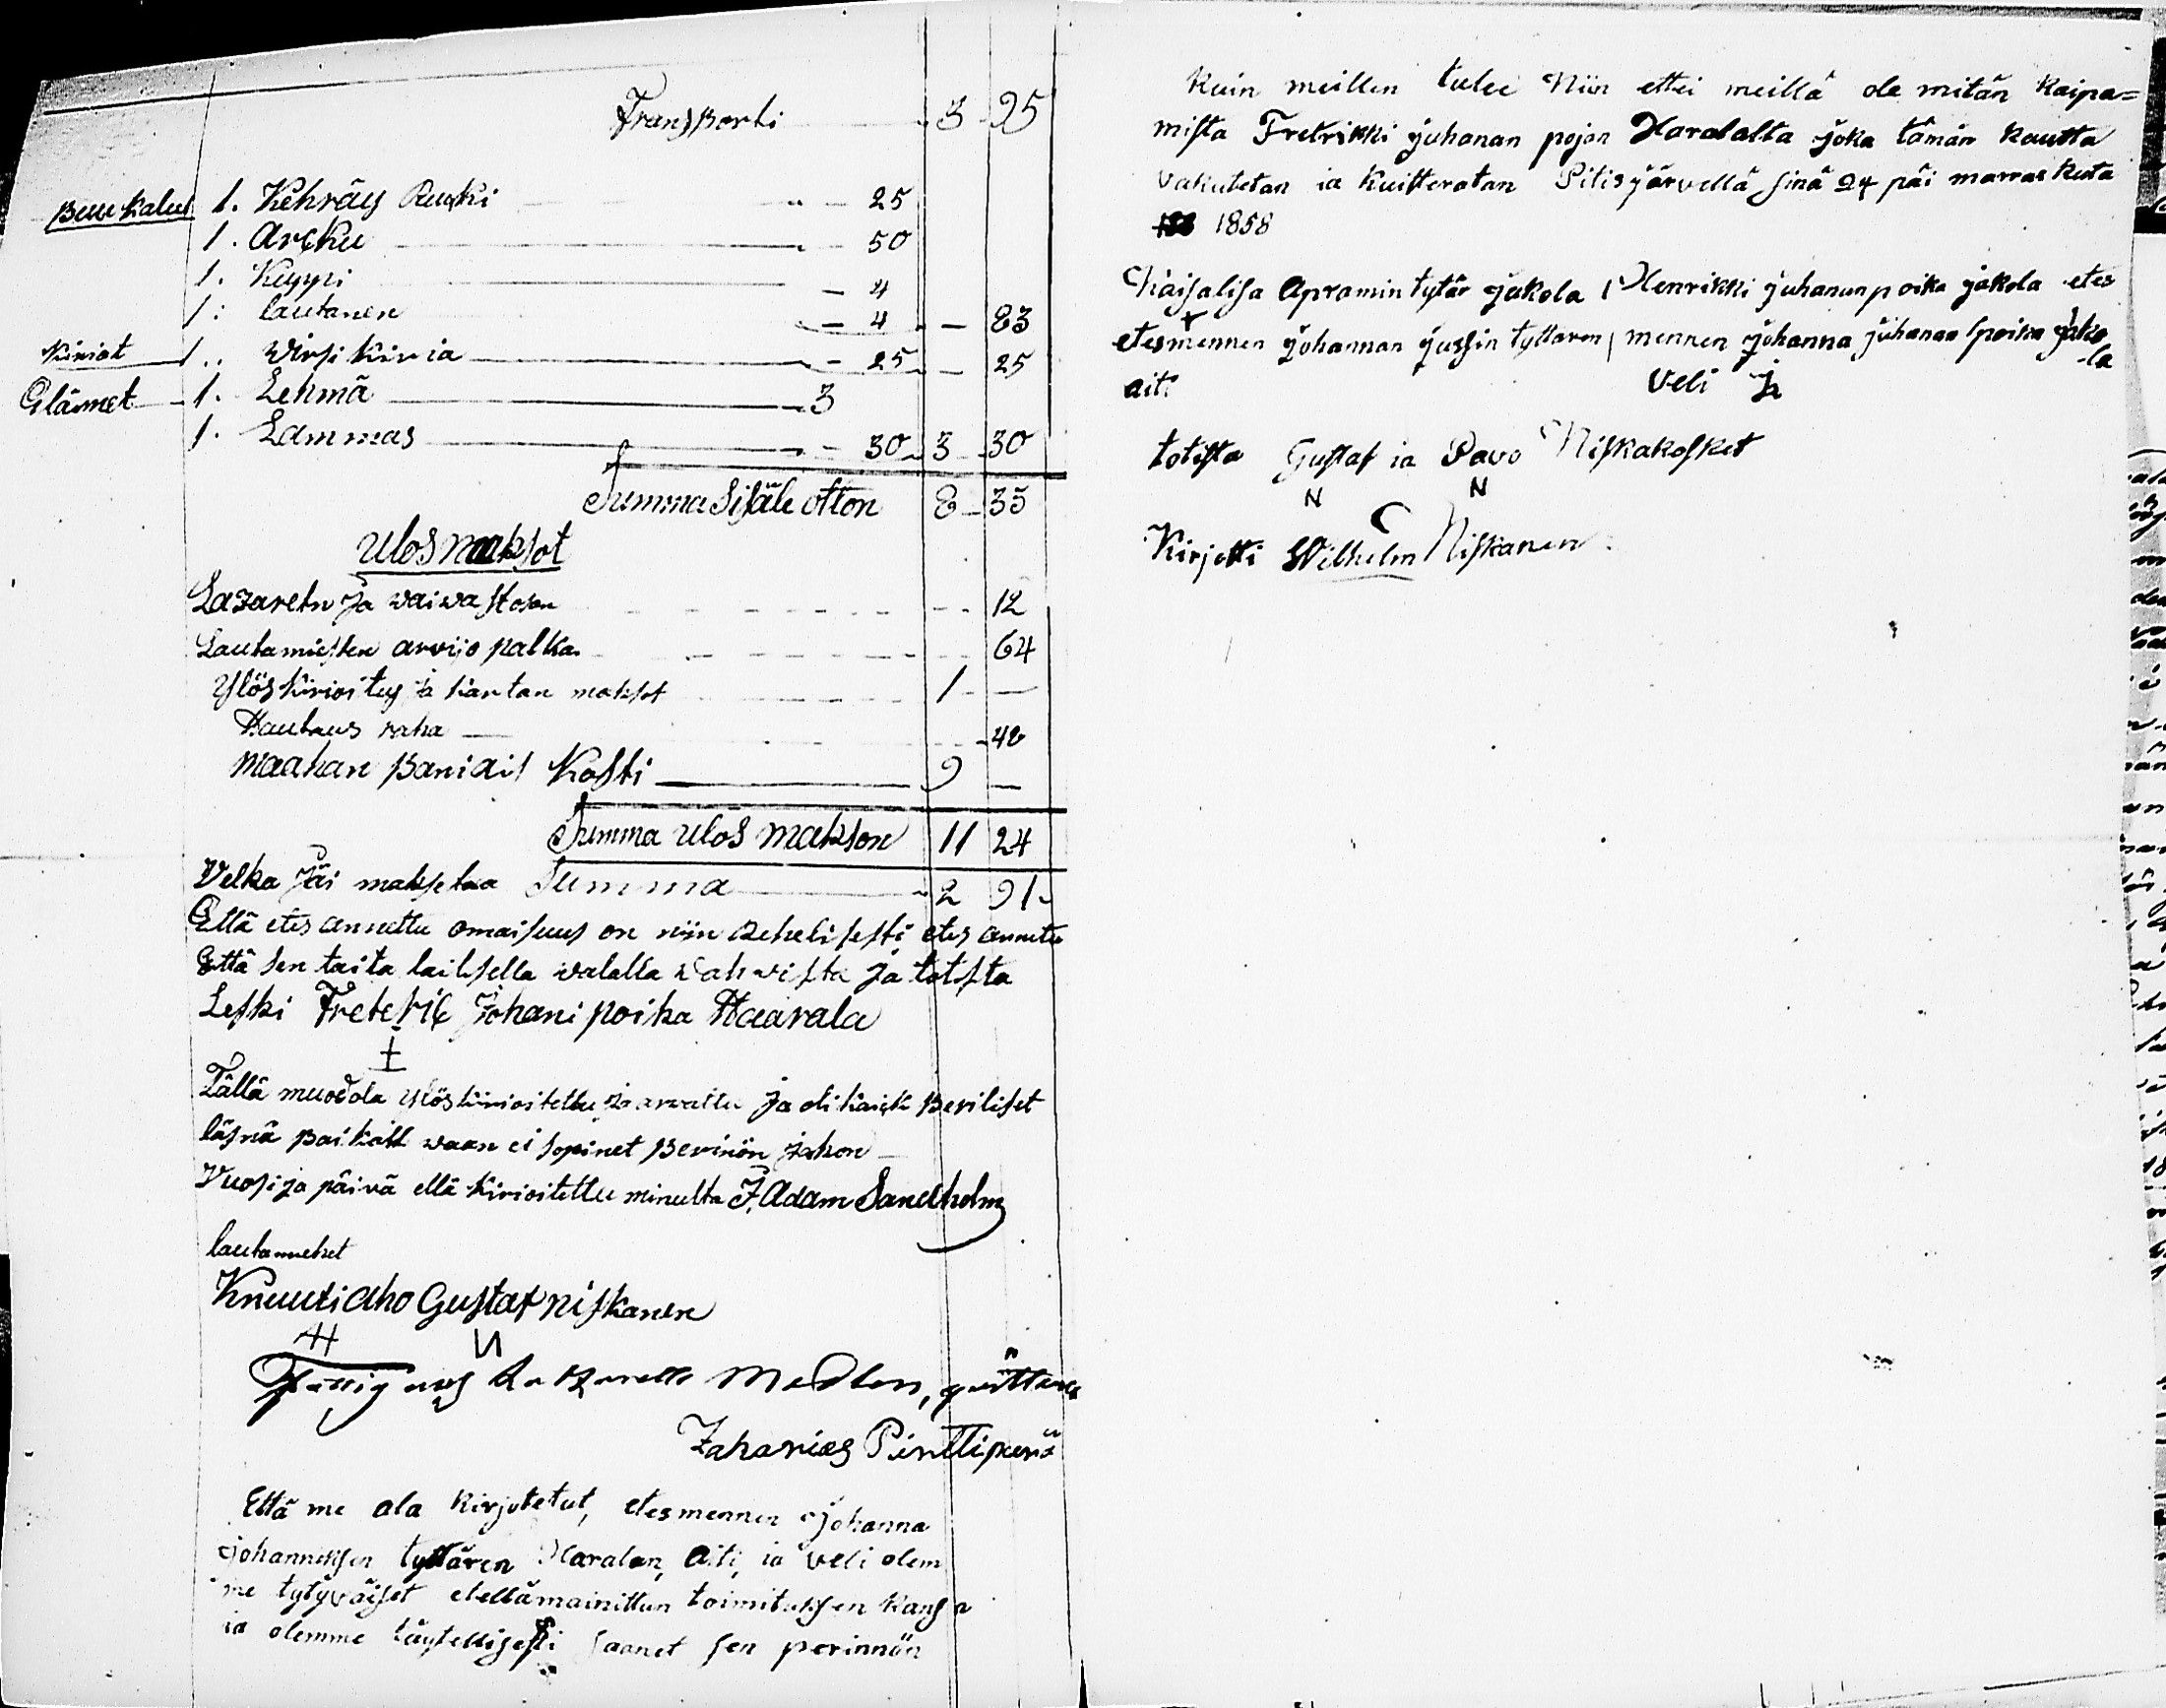 Transporti 3 95
Puu kalut 1. Kehräys Rucki 25
1. Arcku 50
1. Kuppi 4
1: lautanen 4 - 83
Kiriat 1. Wirsi kiria 25 - 25
Eläimet 1. Lehmä 3
1. Lammas 30 3 30
Summa Sisäle otton 8 33
Ulos maksot
Lazaretin ja waiwastosen 12
Lautamiesten arvijo palka 64
Ylöskirioitus ja kartan maksot 1 -
Hautaus raha 48
maahan Paniais Kosti 9 -
Summa ulos makson 11 24
Velka jäi maksetaa Summa 2 91
Että etes annettu omaisuus on niin Rehelisesti etes annetu
Että sen taita lailisella walalla wahwista ja totista
Leski Freteric Johani poika Haarala
+
Tällä muodola ylöskirioitettu ja arvattu ja oli kaick Periliset
läsnä paikall waan ei sopinet Perinön jakon
Vuosi ja päivä ellä kirioitettu minulta J. Adam Sandholm
lautamiehet
Knuuti Aho Gustaf Niskanen
H N
Fattig och Latzaretts Medlen, quitteras
Zaharias Pirttiperä
Että me ala kirjotetut, etesmennen Johanna
Johanneksen tyttären Haralan, Aiti, ia veli olem
me tytyväiset edellämainittun toimituksen kansa
ia olemme täytellisesti saanet sen perinnön
kuin meillen tulee Niin ettei meillä ole mitän kaipa=
mista Fretrikki juhanan pojan Haralalta joka tämän kautta
vakutetan ia kuitteratan Pitisjärvellä sinä 24 päi marras kuta
1858
Kaisalisa Apramin tytär jakola / Henrikki juhanun poika jakola etes
etesmennen johannan jussin tyttaren / mennen johanna juhanan poika jako
+
la
aiti Veli
totista Gustaf ia Pavo Niskakosket
N N
Kirjotti Wilhelm Niskanen